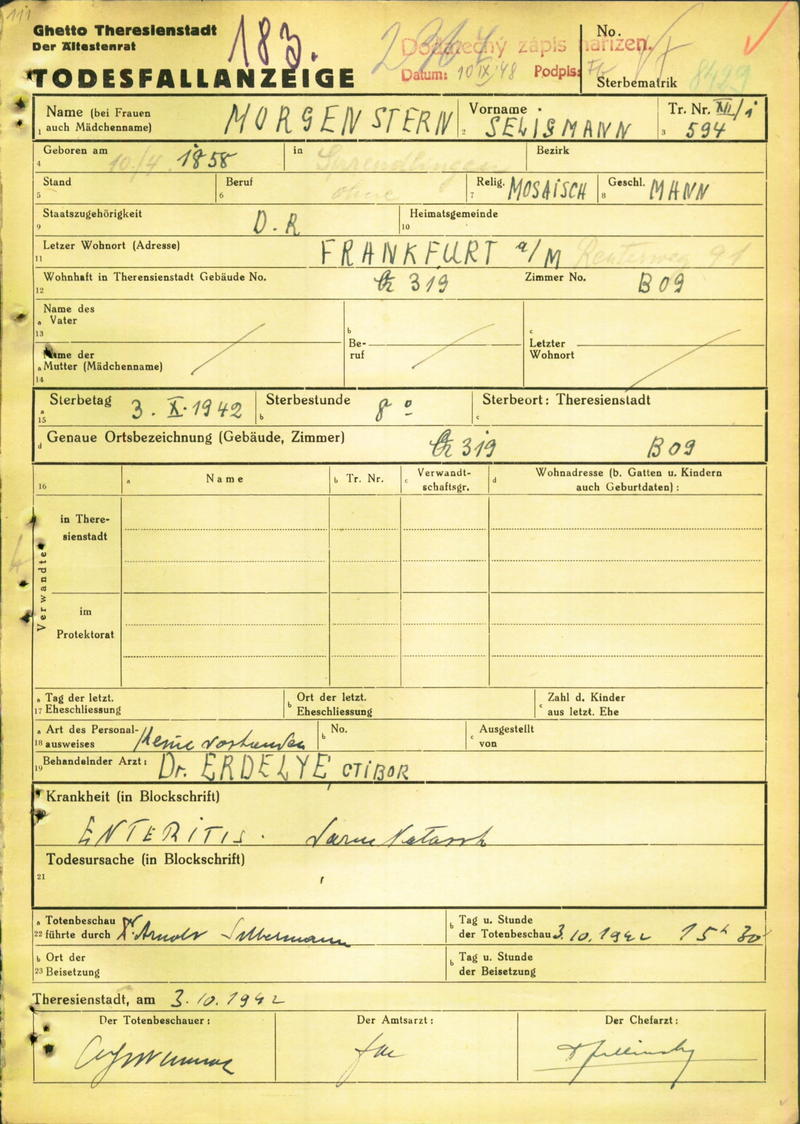 Ghetto Theresienstadt
Der Ältestenrat
183.
TODESFALLANZEIGE
Dodatečný zápis nařízen.
Datum: 10 IX 48 Podpis:
No.
Sterbematrik 8429
Name (bei Frauen
1 auch Mädchenname) MORGENSTERN
Vorname
2 SELIGMANN
Tr. Nr. XII/1
3 594
Geboren am
4 10./4. 1858
in
Bezirk
Stand
5
Beruf
6 ohne
Relig. MOSAISCH
7
Geschl. MANN
8
Staatszugehörigkeit
9 D.R
Heimatsgemeinde
10
Letzer Wohnort (Adresse)
11 FRANKFURT a/M Reuterweg 91
Wohnhaft in Therensienstadt Gebäude No. 319 Zimmer No. B 09
12
Name des
a Vater
13
Name der
a Mutter (Mädchenname)
14
b
Be-
ruf
c
Letzter
Wohnort
a Sterbetag 3. X. 1942
15
Sterbestunde 8 º
b
Sterbeort: Theresienstadt
c
d Genaue Ortsbezeichnung (Gebäude, Zimmer) 319 B 09
16
a Name
b Tr. Nr.
c Verwandt-
schaftsgr.
d Wohnadresse (b. Gatten u. Kindern
auch Geburtdaten) :
Verwandte
in There-
sienstadt
im
Protektorat
a Tag der letzt.
17 Eheschliessung
b Ort der letzt.
Eheschliessung
c Zahl d. Kinder
aus letzt. Ehe
a Art des Personal-
18 ausweises Keine vorhanden
b No.
c Ausgestellt
von
19 Behandelnder Arzt: Dr. ERDELYE CTIBOR
Krankheit (in Blockschrift)
ENTERITIS. Darm Katarrh
Todesursache (in Blockschrift)
21
a Totenbeschau
22 führte durch Dr. Arnold Silbermann
b Tag u. Stunde
der Totenbeschau 3.10.1942 15 h 30
b Ort der
23 Beisetzung
b Tag u. Stunde
der Beisetzung
Theresienstadt, am 3.10.1942
Der Totenbeschauer:
Der Amtsarzt:
Der Chefarzt: